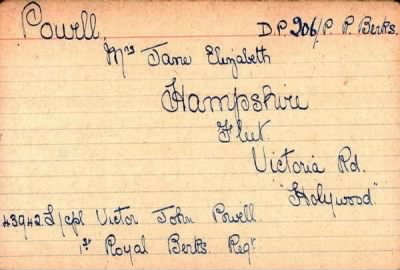 Powell. D.P. 206/P. P. Berks.
Mrs Jane Elizabeth
Hampshire
Fleet
Victoria Rd.
"Holywood."
43942 L/cpl Victor John Powell
1st Royal Berks. Regt.